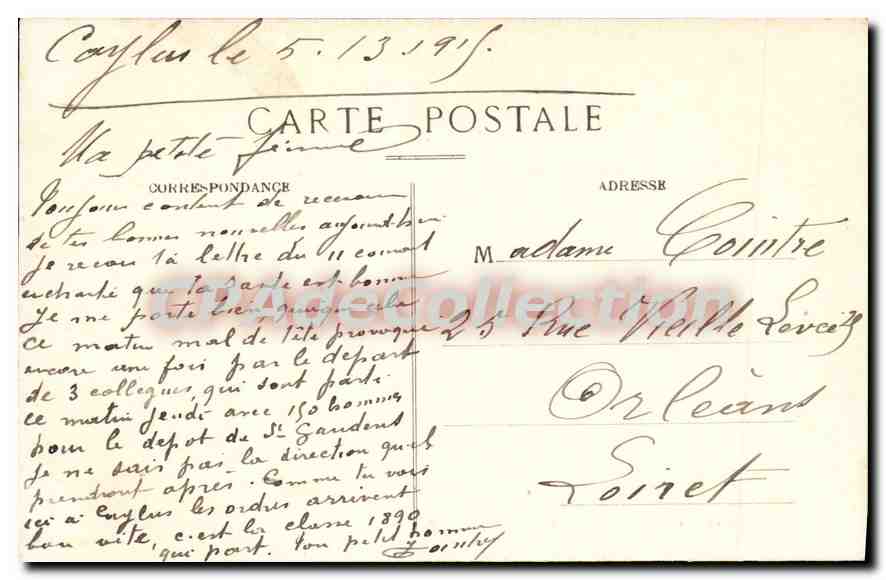 Caylus le 5. 13. 1915.
CARTE POSTALE
Ma petite femme
CORRESPONDANCE
Toujours content de recevoir
de tes bonnes nouvelles aujourd'hui
je recois ta lettre du 11 courant
enchanté que ta santé est bonne
je me porte bien quoique cela
ce matin mal de tête provoqué
encore une fois par le départ
de 3 collegues, qui sont parti
ce matin jeudi avec 150 hommes
pour le depot de St Gaudens
je ne sais pas la direction qu'ils
prendront après. Comme tu vois
ici à Caylus les ordres arrivent
bon vite, c'est la classe 1890
qui part. Ton petit homme
Cointre
ADRESSE
Madame Cointre
25 Rue Vieille
Orléans
Loiret
CPAdeCollection